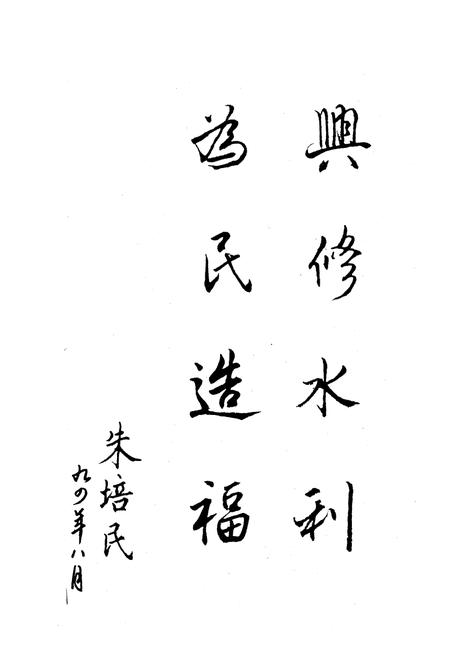 興修水利
為民造福
朱培民
九四年八月